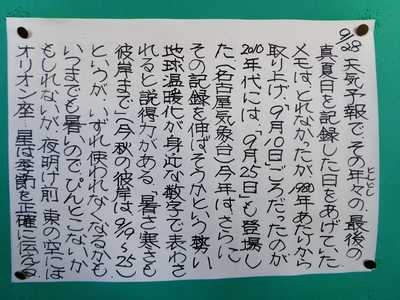 9/28 天気予報で、その年々の、最後の
としどし
真夏日を記録した日をあげていた
メモはとれなかったが、1980年あたりから
取り上げ、「9月10日ごろだったのが
2010年代には、「9月25日」も登場し
た、(名古屋気象台)今年は、さらに
その記録を伸ばそうかという勢い
地球温暖化が身近な数字で表わさ
れると説得力がある、「暑さ寒さも
彼岸まで」(今秋の彼岸は、9/19~25)
というが、いずれ使われなくなるかも
いつまでも暑いので、ぴんとこないか
もしれないが、夜明け前、東の空には
オリオン座、星は季節を正確に伝える